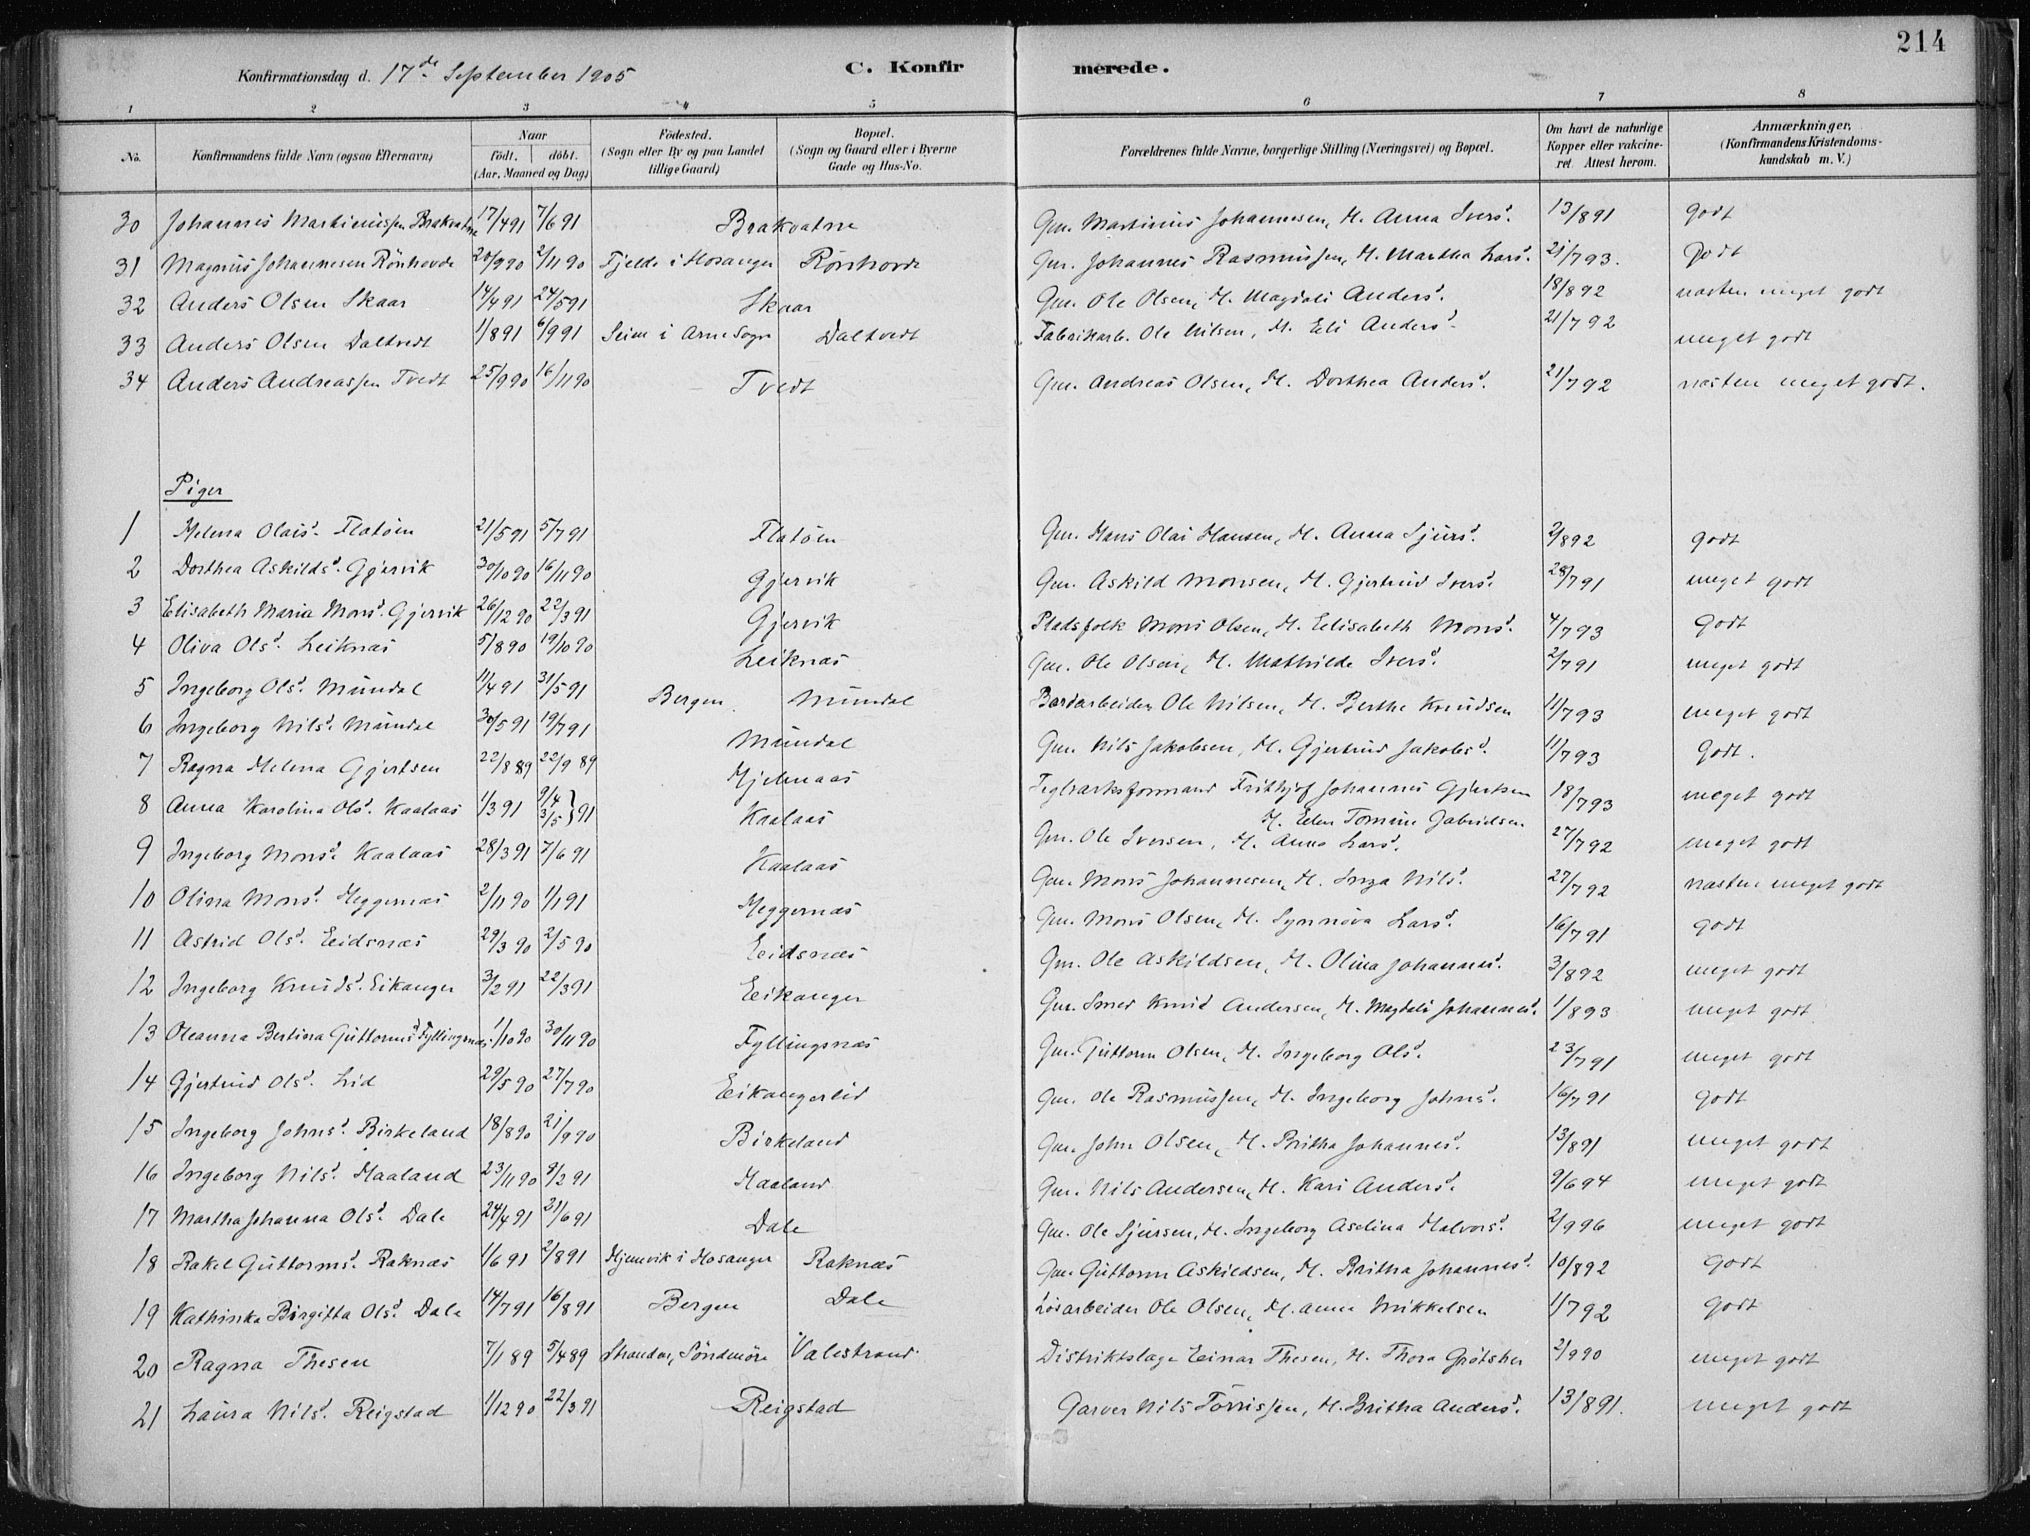 214
Konfirmationsdag d. 17de September 1905 C. Konfirmerede.
1 2 3 4 5 6 7 8
No. Konfirmandens fulde Navn (ogsaa Efternavn) Naar födt. döbt. (Aar, Maaned og Dag) Födested. (Sogn eller By og paa Landet tillige Gaard) Bopæl. (Sogn og Gaard eller i Byerne Gade og Hus-No. Forældrenes fulde Navne, borgerlige Stilling (Næringsvei) og Bopæl. Om havt de naturlige Kopper eller vakcineret Attest herom. Anmærkninger, (Konfirmandens Kristendomskundskab m. V.)
30 Johannes Martinussen Brakvatne 17/4 91 7/6 91 Brakvatne Gm. Martinus Johannesen, H. Anna Ivers d. 13/8 91 godt
31 Magnus Johannesen Rönhovde 20/9 90 2/11 90 Fjelde i Hosanger Rönhovde Gm. Johannes Rasmussen, H. Martha Lars d. 21/7 93. godt
32 Anders Olsen Skaar 14/4 91 24/5 91 Skaar Gm. Ole Olsen, H. Magdali Anders d. 18/8 92 næsten meget godt
33 Anders Olsen Daltvedt 1/8 91 6/9 91 Seim i Arne Sogn Daltvedt Fabrikarb. Ole Nilsen, H. Eli Anders d. 21/7 92 meget godt
34 Anders Andreassen Tvedt 25/9 90 16/11 90 Tvedt Gm. Andreas Olsen, H. Dorthea Anders d. 21/7 92 næsten meget godt.
Piger
1 Helena Olais d. Flatöen 21/5 91 5/7 91 Flatöen Gm. Hans Olai Hansen, H. Anna Sjurs d. 2/8 92 godt
2 Dorthea Askilds d. Gjervik 30/10 90 16/11 90 Gjervik Gm. Askild Monsen, H. Gjertrud Ivers d. 28/7 91 meget godt
3 Elisabeth Maria Mons d. Gjervik 26/12 90 22/3 91 Gjervik Pladsfolk Mons Olsen, H. Elisabeth Mons d. 4/7 93 godt
4 Oliva Ols d. Leiknæs 5/8 90 19/10 90 Leiknæs Gm. Ole Olsen, H. Mathilde Ivers d. 2/7 91 meget godt
5 Ingeborg Ols d. Mundal 11/4 91 31/5 91 Bergen Mundal Ole Nilsen, H. Berthe Knudsen 11/7 93 meget godt
6 Ingeborg Nils d. Mundal 30/5 91 19/7 91 Mundal Gm. Nils Jakobsen, H. Gjertrud Jakobs d. 11/7 93 godt.
7 Ragna Helena Gjertsen 22/8 89 22/9 89 Hjelmaas Teglværksformand Frithjof Johannes Gjertsen H. Ellen Tomine Gabrielsen 18/7 93 meget godt
8 Anna Karolina Ols d. Kaalaas 1/3 91 9/4 3/5 } 91 Kaalaas Gm. Ole Iversen, H. Anna Lars d. 27/7 92 meget godt
9 Ingeborg Mons d. Kaalaas 28/3 91 7/6 91 Kaalaas Gm. Mons Johannesen, H. Inga Nils d. 27/7 92 næsten meget godt
10 Olina Mons d. Heggernæs 2/11 90 1/1 91 Heggernæs Gm. Mons Olsen, H. Synnöva Lars d. 16/7 91 godt
11 Astrid Ols d. Eidsnæs 29/3 90 2/5 90 Eidsnæs Gm. Ole Askildsen, H. Olina Johannes d. 3/8 92 meget godt
12 Ingeborg Knuds d. Eikanger 3/2 91 22/3 91 Eikanger Gm. Smed Knud Andersen, H. Magdali Johannes d. 1/8 93 meget godt
13 Oleanna Bertina Guttorms d. Fyllingsnæs 1/10 90 30/11 90 Fyllingsnæs Gm. Guttorm Olsen, H. Ingeborg Ols d. 23/7 91 meget godt
14 Gjertrud Ols d. Lid 29/5 90 27/7 90 Eikangerlid Gm. Ole Rasmussen, H. Ingeborg Johns d. 16/7 91 godt
15 Ingeborg Johns d. Birkeland 18/8 90 21/9 90 Birkeland Gm. John Olsen, H. Britha Johannes d. 13/8 91 meget godt
16 Ingeborg Nils d. Haaland 23/11 90 8/2 91 Haaland Gm. Nils Andersen, H. Kari Anders d. 9/6 94 meget godt
17 Martha Johanna Ols d. Dale 24/4 91 21/6 91 Dale Gm. Ole Sjursen, H. Ingeborg Aselina Halvors d. 2/9 96 meget godt
18 Rakel Guttorms d. Raknæs 1/6 91 2/8 91 Hjemvik i Hosanger Raknæs Gm. Guttorm Askildsen, H. Britha Johannes d. 10/8 92 godt
19 Kathinka Birgitta Ols d. Dale 14/7 91 16/8 91 Bergen Dale Lösarbeider Ole Olsen, H. Anna Mikkelsen 1/7 92 godt
20 Ragna Thesen 7/1 89 5/4 89 Stranden, Söndmöre Valestrand Distriktslæge Einar Thesen, H. Thora 2/9 90 meget godt
21 Laura Nils d. Reigstad 1/12 90 22/3 91 Reigstad Garver Nils Törrissen, H. Britha Anders d. 13/8 91. meget godt